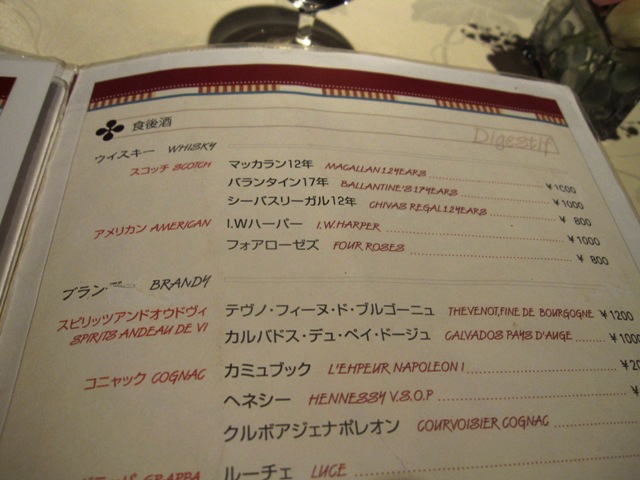 食後酒 Digestif
ウイスキー WHISKY
スコッチ SCOTCH マッカラン12年 MACALLAN 12YEARS ¥1000
バランタイン17年 BALLANTINE'S 17YEARS ¥1000
シーバスリーガル12年 CHIVAS REGAL 12YEARS ¥ 800
アメリカン AMERICAN I.Wハーパー I.W.HARPER ¥1000
フォアローゼズ FOUR ROSES ¥ 800
ブラン BRANDY
スピリッツアンドオウドヴィ テヴノ・フィーヌ・ド・ブルゴーニュ THEVENOT,FINE DE BOURGOGNE ¥1200
SPIRITS ANDEAU DE VI カルバドス・デュ・ペイ・ドージュ CALVADOS PAYS D'AUGE ¥1000
コニャック COGNAC カミュブック L'EHPEUR NAPOLEON I
ヘネシー HENNESSY V.S.O.P
クルボアジェナポレオン COURVOISIER COGNAC
GRAPPA ルーチェ LUCE